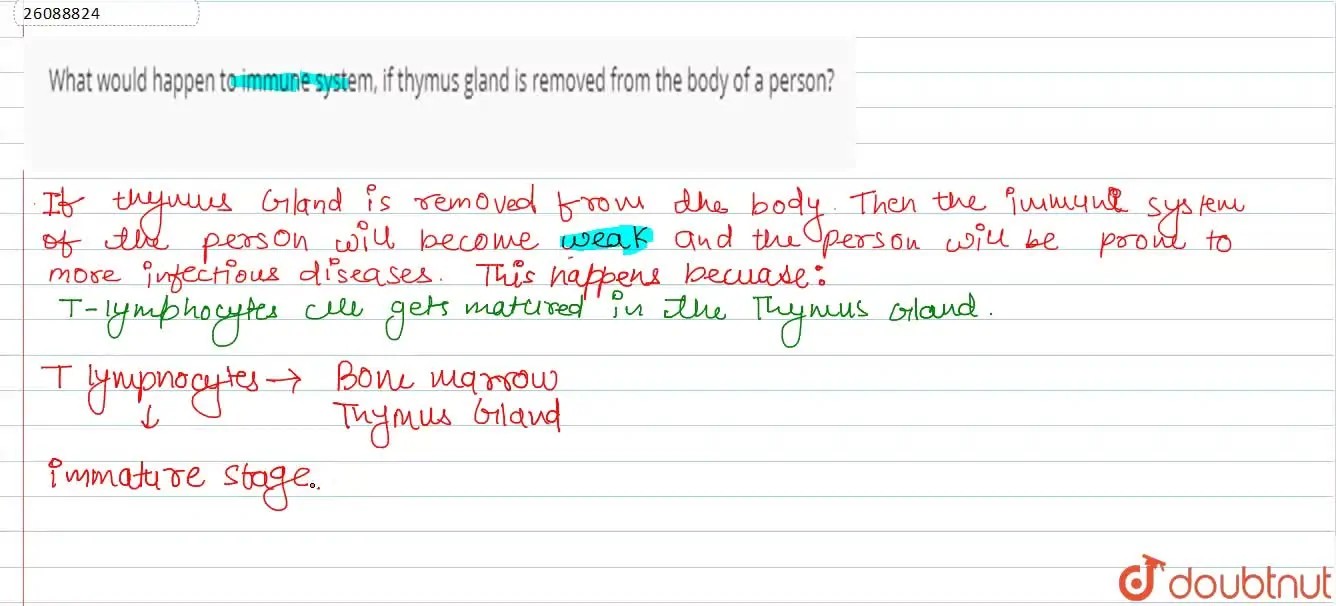 26088824
What would happen to immune system, if thymus gland is removed from the body of a person?
If thymus Gland is removed from the body. Then the immune system
of the person will become weak and the person will be prone to
more infectious diseases. This happens becuase:
T-lymphocytes cell gets matured in the Thymus Gland.
T lymphocytes → Bone marrow
↓ Thymus Gland
immature stage.
doubtnut